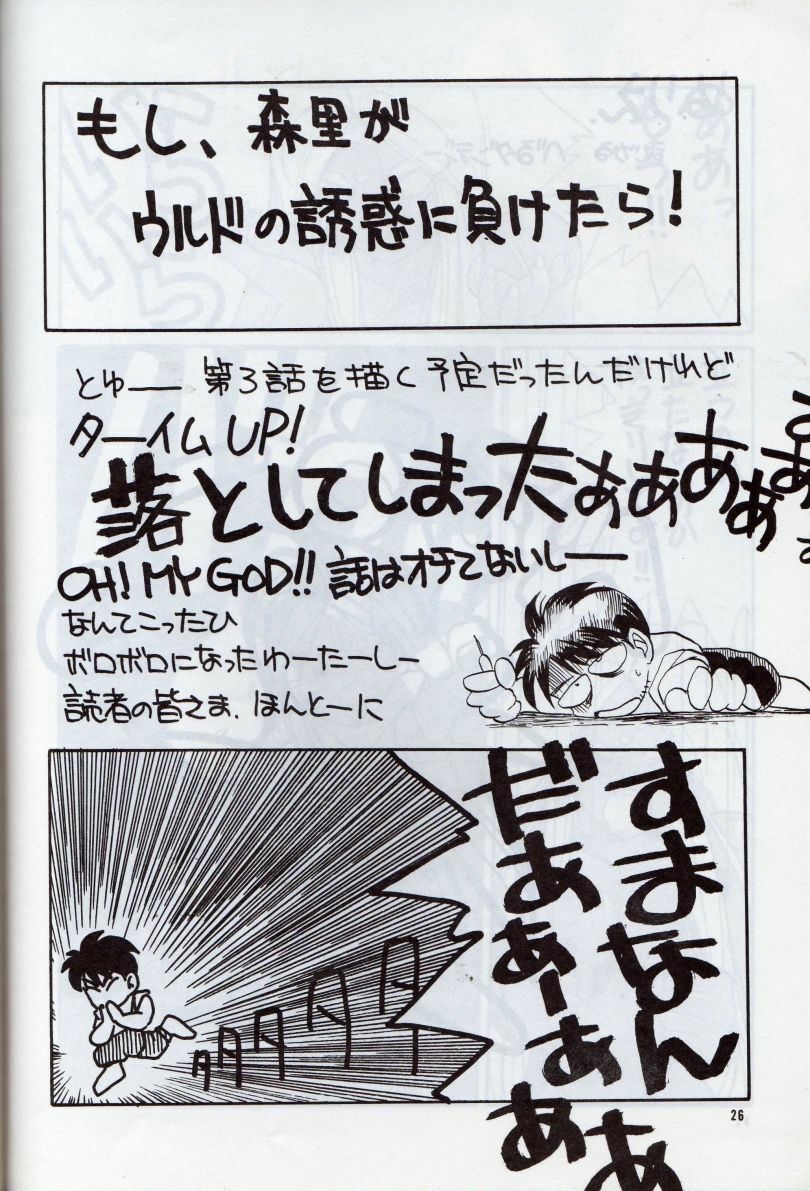 もし、森里が
ウルドの誘惑に負けたら!
とゅー 第3話を描く予定だったんだけれど
ターイムUP!
落としてしまったぁぁあぁぁ
OH! MY GOD!! 話はオチてないしー
なんてこったひ
ボロボロになったわーたーしー
読者の皆さま、ほんとーに
すまなん
だあぁーぁぁあぁ
26